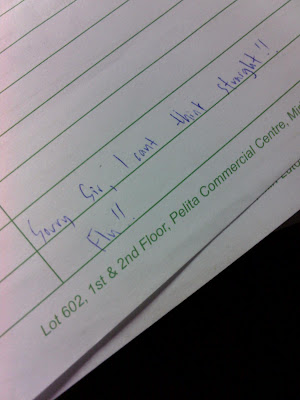 Sorry Sir, I cant think straight!!
Flu!!
Lot 602, 1st & 2nd Floor, Pelita Commercial Centre,